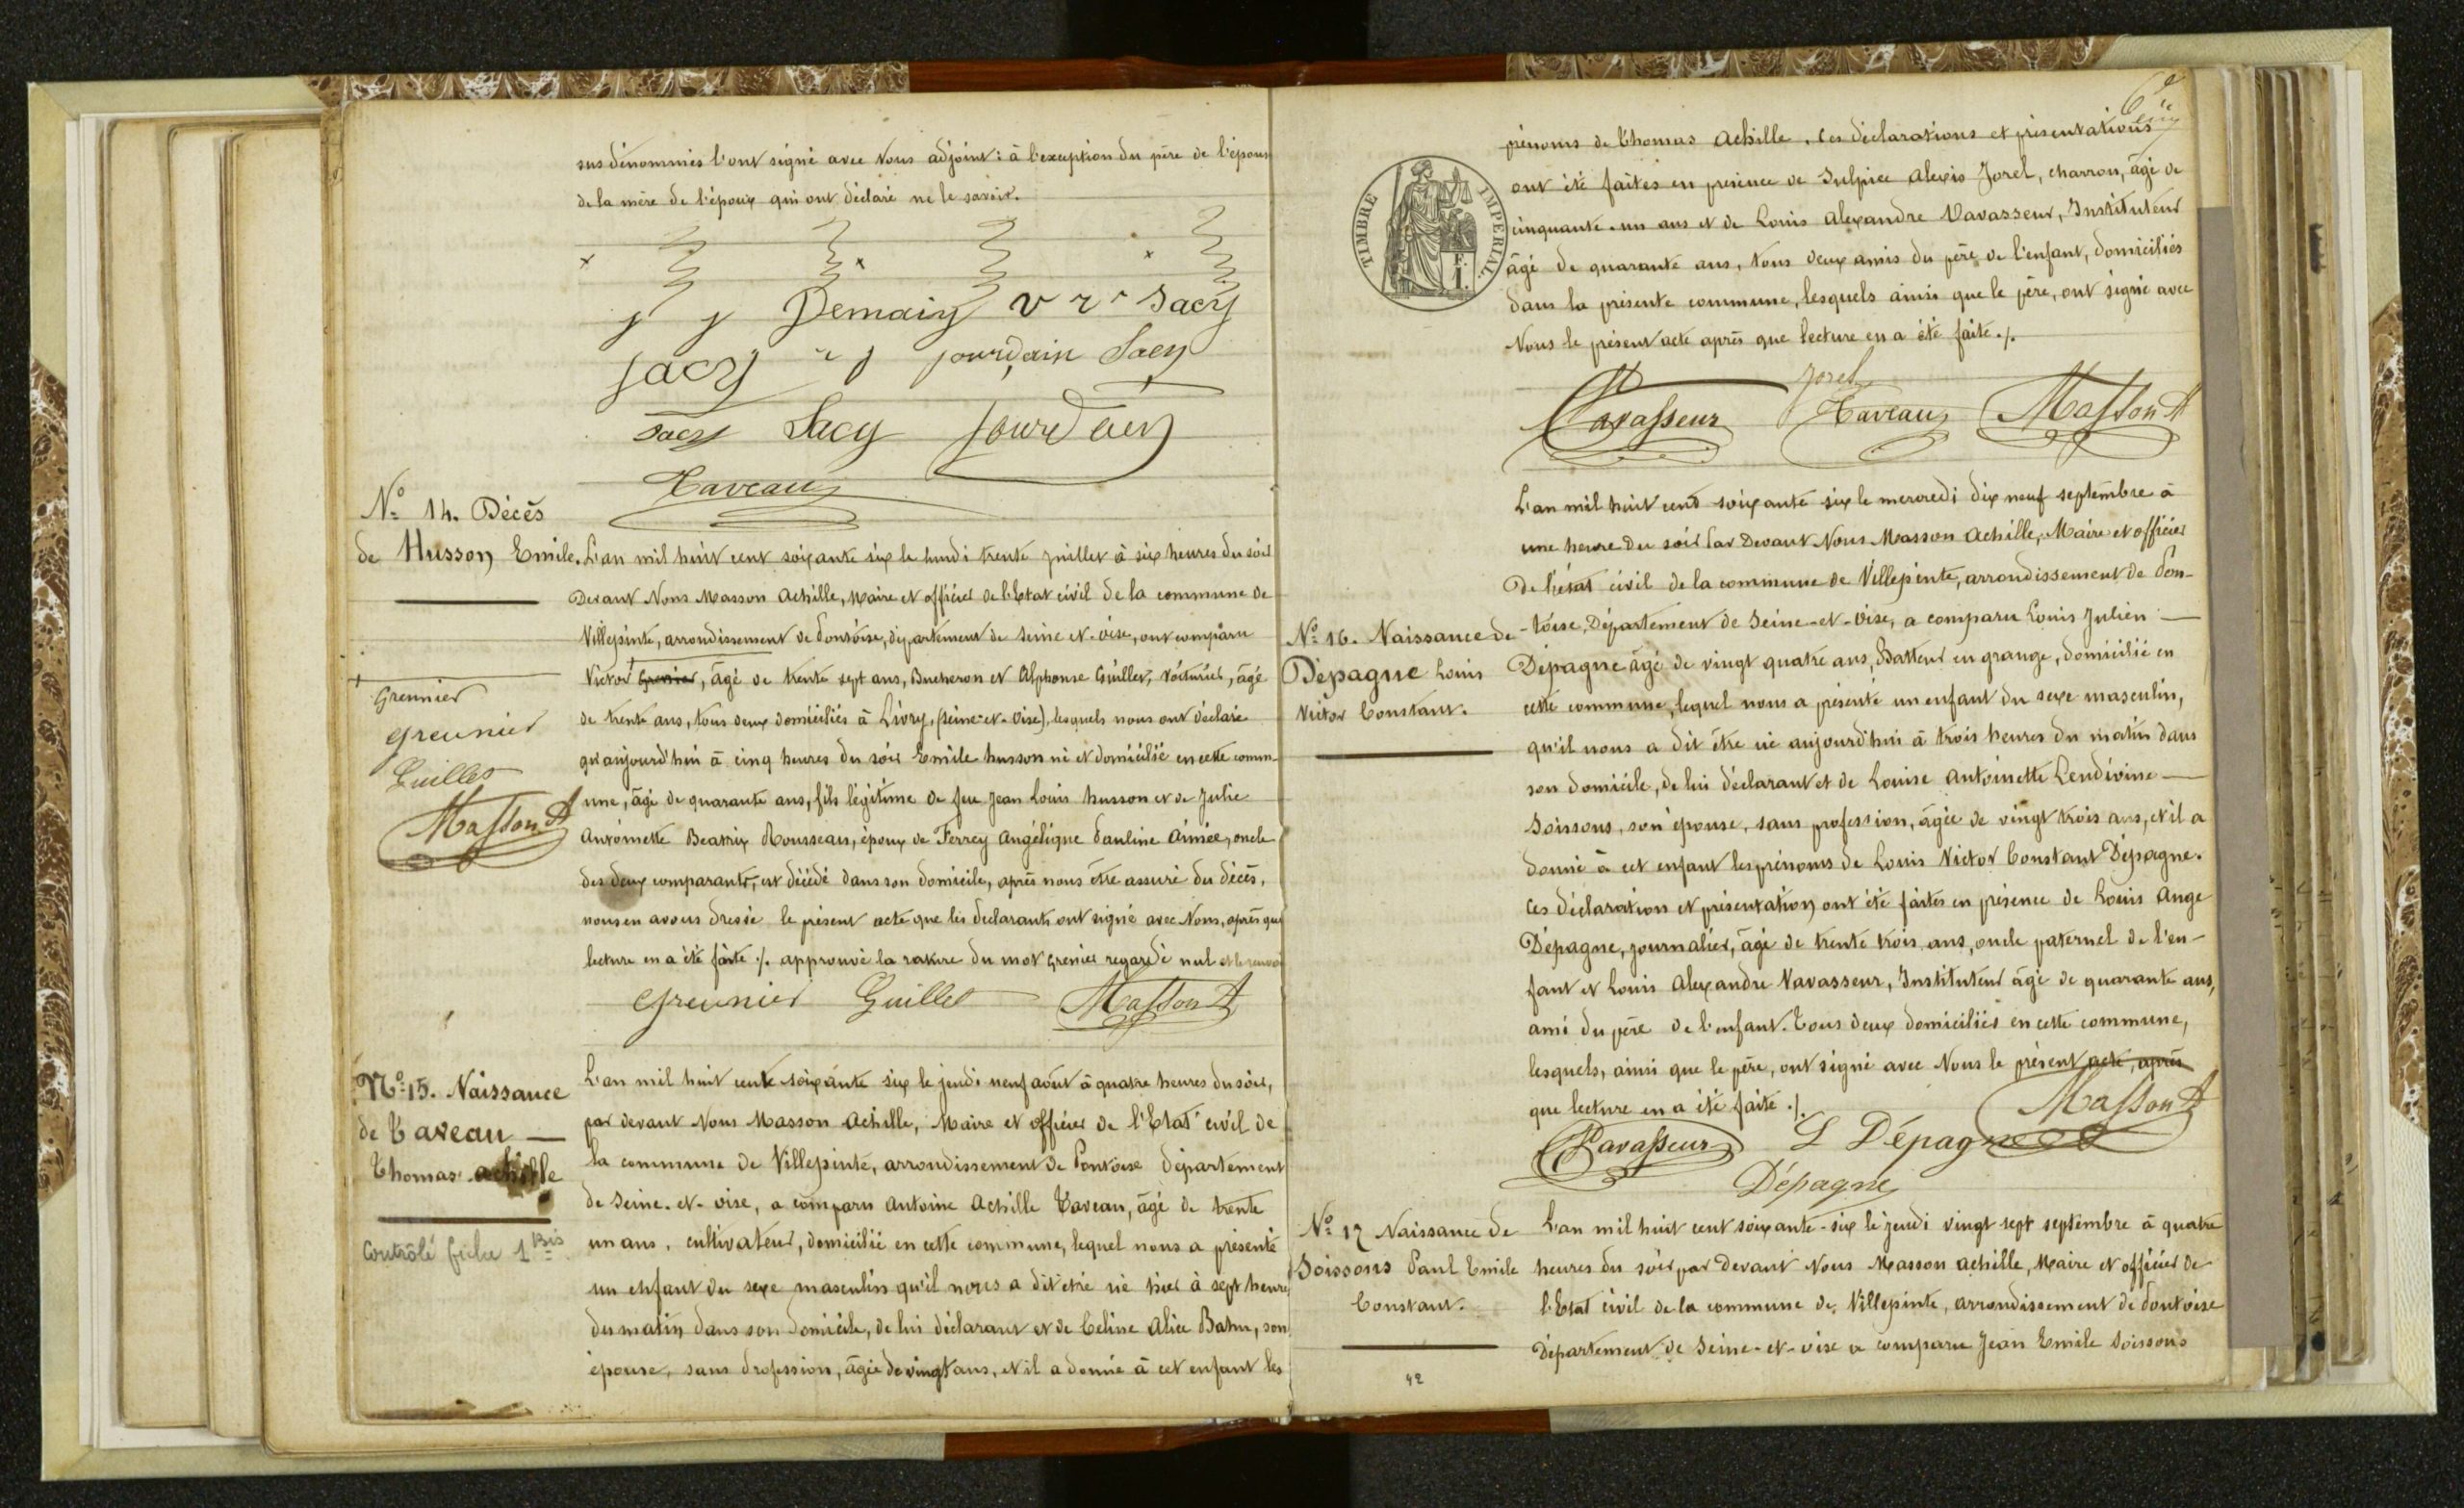 sus dénommés l'ont signé avec Nous adjoint : à l'exception du père de l'épouse
de la mère de l'époux qui ont déclaré ne le savoir.
Demain v r Sacy
Sacy jourdain Sacy
Sacy Sacy Jourdain
Taveau
N° 14. Décès
de Husson Emile.
Grennier
Greunier
Guillet
Masson A
L'an mil huit cent soixante six le lundi trente juillet à six heures du soir
Devant Nous Masson Achille, Maire et officier de l'Etat civil de la commune de
Villepinte, arrondissement de Pontoise, département de Seine-et-Oise, ont comparu
Victor Grenier, âgé de trente sept ans, Bucheron et Alphonse Guillet, voiturier, âgé
de trente ans, tous deux domiciliés à Livry, (Seine-et-Oise), lesquels nous ont déclaré
qu'aujourd'hui à cinq heures du soir Emile husson né et domicilié en cette comm-
une, âgé de quarante ans, fils légitime de feu Jean Louis husson et de Julie
Antoinette Beatrix Rousseau, époux de Ferrey Angélique Pauline Aimée, oncle
des deux comparants, est décédé dans son domicile, après nous être assuré du décès,
nous en avons dressé le présent acte que les déclarants ont signé avec Nous, après que
lecture en a été faite ./. approuvé la rature du mot Grenier regardé nul et le renvoi
Greunier Guillet Masson A
N° 15. Naissance
de Taveau
Thomas achille
Contrôlé fiche 1 Bis
L'an mil huit cent soixante six le jeudi neuf août à quatre heures du soir,
par devant Nous Masson Achille, Maire et officier de l'Etat civil de
la commune de Villepinte, arrondissement de Pontoise département
de Seine-et-Oise, a comparu Antoine Achille Taveau, âgé de trente
un ans, cultivateur, domicilié en cette commune, lequel nous a présenté
un enfant du sexe masculin qu'il nous a dit être né hier à sept heures
du matin dans son domicile, de lui déclarant et de Celine Alice Bahu, son
épouse, sans profession, âgée de vingt ans, et il a donné à cet enfant les
TIMBRE IMPERIAL
prénoms de Thomas Achille. Ces déclarations et présentations
ont été faites en présence de Sulpice Alexis Jorel, charron, âgé de
cinquante-un ans et de Louis Alexandre Vavasseur, Instituteur
âgé de quarante ans, tous deux amis du père de l'enfant, domiciliés
dans la présente commune, lesquels ainsi que le père, ont signé avec
Nous le présent acte après que lecture en a été faite ./.
Jorel
Vavasseur Taveau Masson A
N° 16. Naissance de
Dépagne Louis
Victor Constant.
L'an mil huit cent soixante six le mercredi dix neuf septembre à
une heure du soir Par Devant Nous Masson Achille, Maire et officier
De l'état civil de la commune de Villepinte, arrondissement de Pon-
-toise, Département de Seine-et-Oise, a comparu Louis Julien
Dépagne âgé de vingt quatre ans, Batteur en grange, domicilié en
cette commune, lequel nous a présenté un enfant du sexe masculin,
qu'il nous a dit être né aujourd'hui à trois heures du matin dans
son domicile, de lui déclarant et de Louise Antoinette Lendivine
Soissons, son épouse, sans profession, âgée de vingt trois ans, et il a
donné à cet enfant les prénoms de Louis Victor Constant Dépagne.
Ces déclaration et présentation ont été faites en présence de Louis Ange
Dépagne, journalier, âgé de trente trois ans, oncle paternel de l'en-
fant et Louis Alexandre Vavasseur, Instituteur âgé de quarante ans,
ami du père de l'enfant. Tous deux domiciliés en cette commune,
lesquels, ainsi que le père, ont signé avec Nous le présent acte, après
que lecture en a été faite ./.
Masson A
Vavasseur L Dépagne
Dépagne
N° 17 Naissance de
Soissons Paul Emile
Constant.
L'an mil huit cent soixante-six le jeudi vingt sept septembre à quatre
heures du soir par Devant Nous Masson Achille, Maire et officier de
l'Etat civil de la commune de Villepinte, arrondissement de Pontoise
Département de Seine-et-Oise a comparu Jean Emile Soissons
42